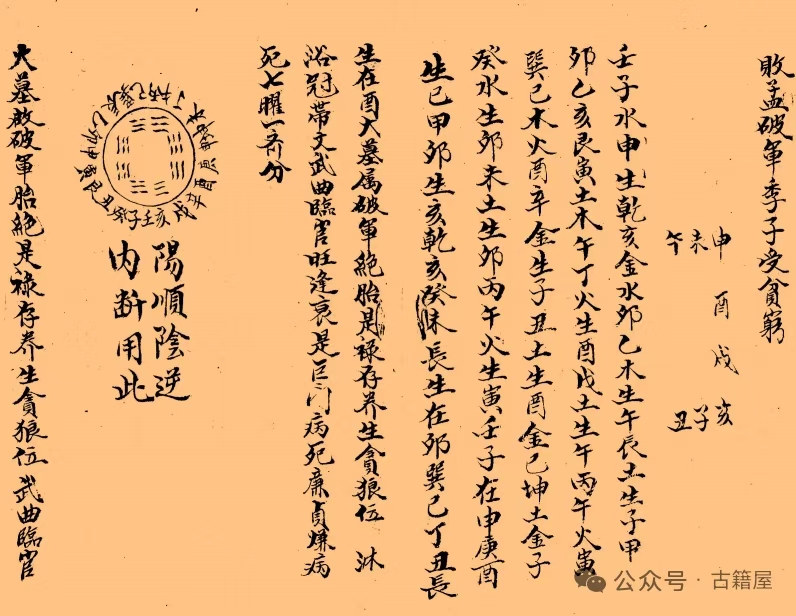 敗孟破軍季子受貧窮
申 酉 戌 亥
未 子
午 丑
壬子水申生乾亥金水卯乙木生午辰土生子甲
卯乙亥艮寅土木午丁火生酉戊土生午丙午火寅
巽巳木火酉辛金生子丑土生酉金巳坤土金子
癸水生卯未土生卯丙午火生寅壬子在申庚酉
生巳甲卯生亥乾亥癸未長生在卯巽巳丁丑長
生在酉大墓属破軍絶胎是禄存养生貪狼位 沐
浴冠帶文武曲臨官旺逢衰是巨门病死廉貞嫌病
死七曜一齐分
陽順陰逆
内断用此
大墓啟破軍胎絶是禄存养生貪狼位 武曲臨官
公众号·古籍屋